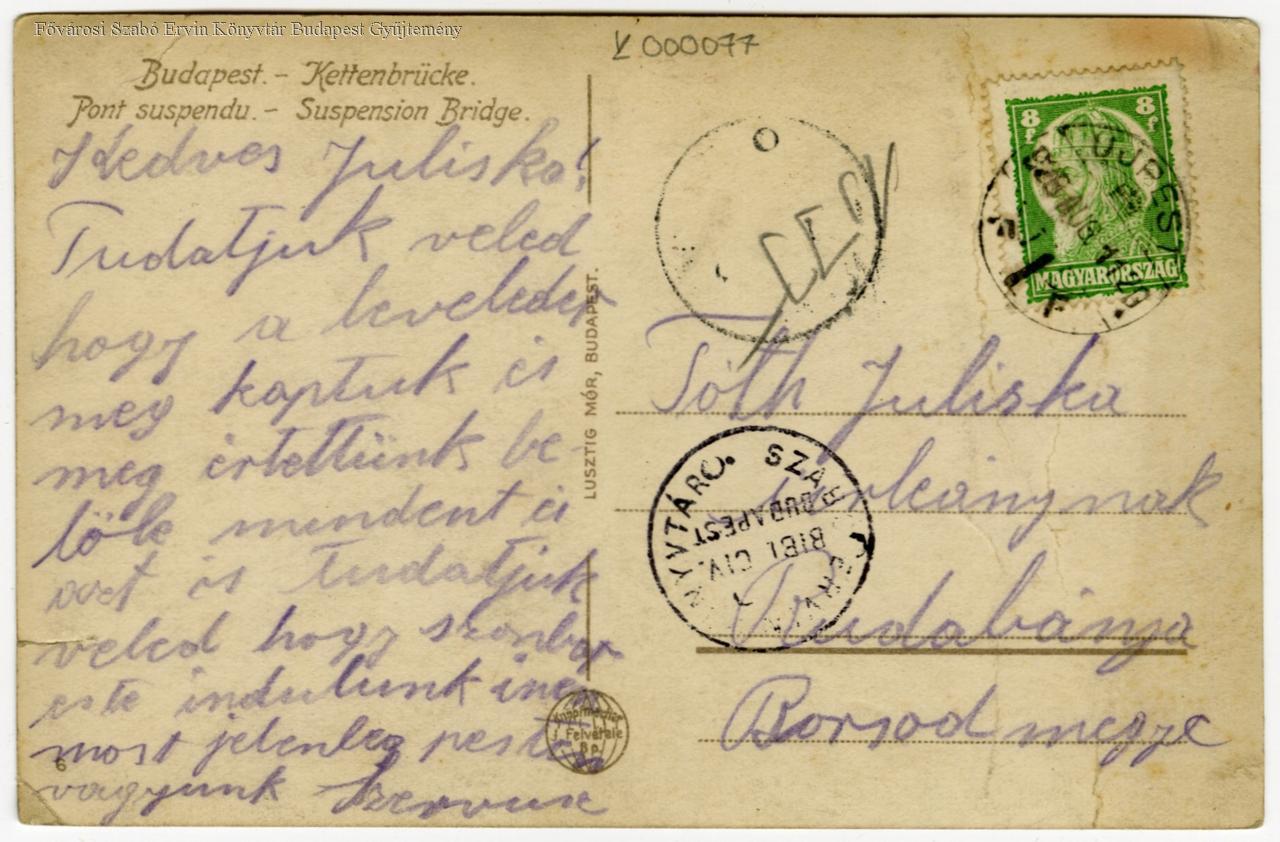 Fővárosi Szabó Ervin Könyvtár Budapest Gyűjtemény
Y 000077
Budapest. – Kettenbrücke.
Pont suspendu. – Suspension Bridge.
Kedves Juliska!
Tudatjuk veled
hogy a leveledet
meg kaptuk és
meg értettünk be-
löle mindent és
azt is Tudatjuk
veled hogy szombat
este indulunk
most jelenleg pesten
vagyunk Szervusz
6
LUSZTIG MÓR, BUDAPEST.
Felvétele
Bp.
8f 8f
MAGYARORSZÁG
ÚJPEST
AUG
Tóth Juliska
urleánynak
Rudabánya
Borsod megye
BUDAPEST